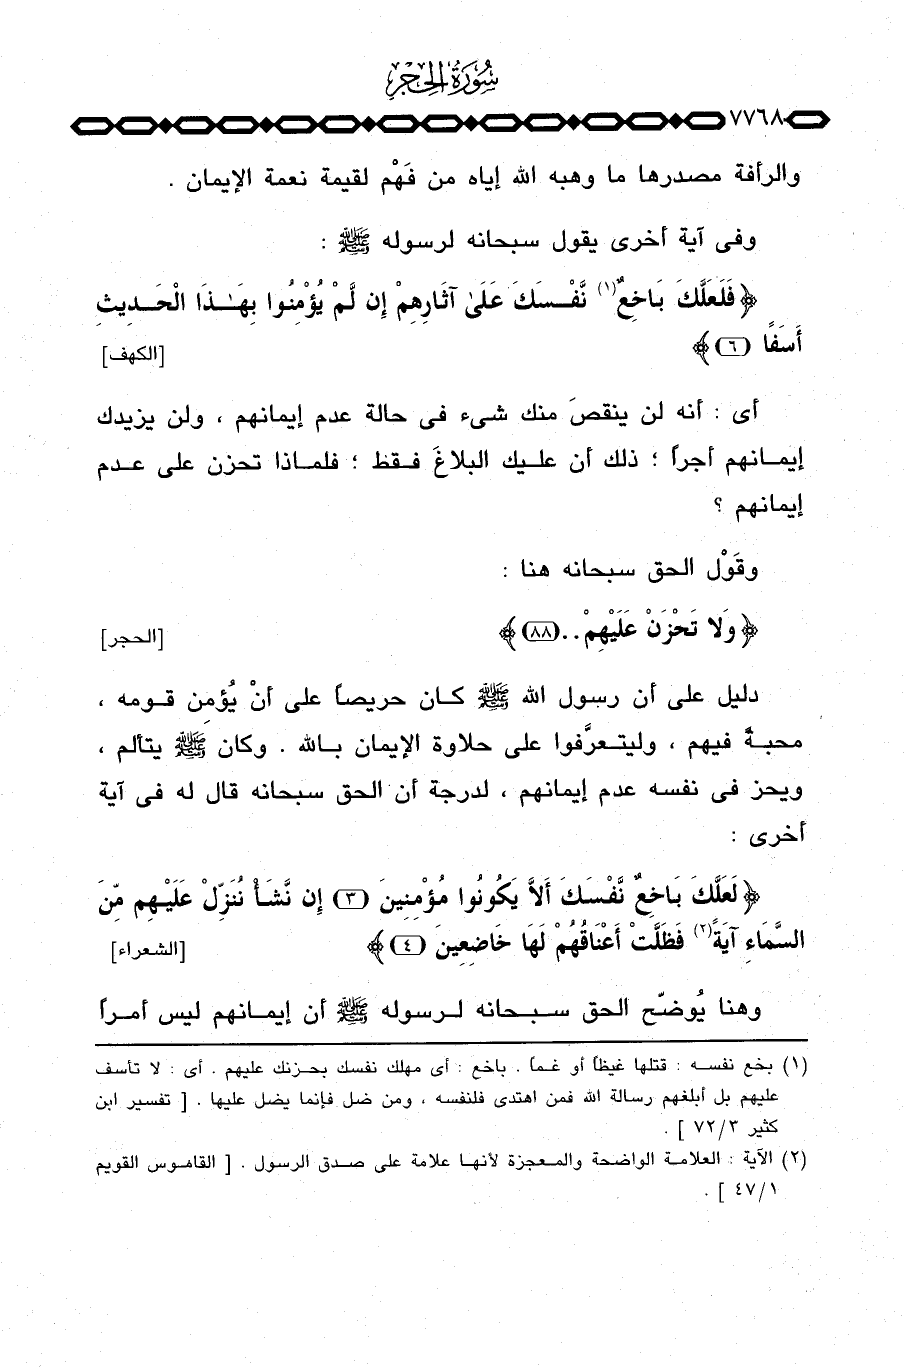 سُورَةُ الحِجْرِ
٧٧٦٨
والرأفة مصدرها ما وهبه الله إياه من فَهْم لقيمة نعمة الإيمان .
وفى آية أخرى يقول سبحانه لرسوله ﷺ :
﴿ فَلَعَلَّكَ بَاخِعٌ(١) نَّفْسَكَ عَلَىٰ آثَارِهِمْ إِن لَّمْ يُؤْمِنُوا بِهَـٰذَا الْحَدِيثِ
أَسَفًا (٦) ﴾ [الكهف]
أى : أنه لن ينقصَ منك شىء فى حالة عدم إيمانهم ، ولن يزيدك
إيمانهم أجراً ؛ ذلك أن عليك البلاغَ فقط ؛ فلماذا تحزن على عدم
إيمانهم ؟
وقَوْل الحق سبحانه هنا :
﴿ وَلا تَحْزَنْ عَلَيْهِمْ .. (٨٨) ﴾ [الحجر]
دليل على أن رسول الله ﷺ كان حريصاً على أنْ يُؤمِن قومه ،
محبةً فيهم ، وليتعرَّفوا على حلاوة الإيمان بالله . وكان ﷺ يتألم ،
ويحز فى نفسه عدم إيمانهم ، لدرجة أن الحق سبحانه قال له فى آية
أخرى :
﴿ لَعَلَّكَ بَاخِعٌ نَّفْسَكَ أَلاَّ يَكُونُوا مُؤْمِنِينَ (٣) إِن نَّشَأْ نُنَزِّلْ عَلَيْهِم مِّنَ
السَّمَاءِ آيَةً(٢) فَظَلَّتْ أَعْنَاقُهُمْ لَهَا خَاضِعِينَ (٤) ﴾ [الشعراء]
وهنا يُوضِّح الحق سبحانه لرسوله ﷺ أن إيمانهم ليس أمراً
(١) بخع نفسه : قتلها غيظاً أو غماً . باخع : أى مهلك نفسك بحزنك عليهم . أى : لا تأسف
عليهم بل أبلغهم رسالة الله فمن اهتدى فلنفسه ، ومن ضل فإنما يضل عليها . [ تفسير ابن
كثير ٧٢/٣ ] .
(٢) الآية : العلامة الواضحة والمعجزة لأنها علامة على صدق الرسول . [ القاموس القويم
٤٧/١ ] .